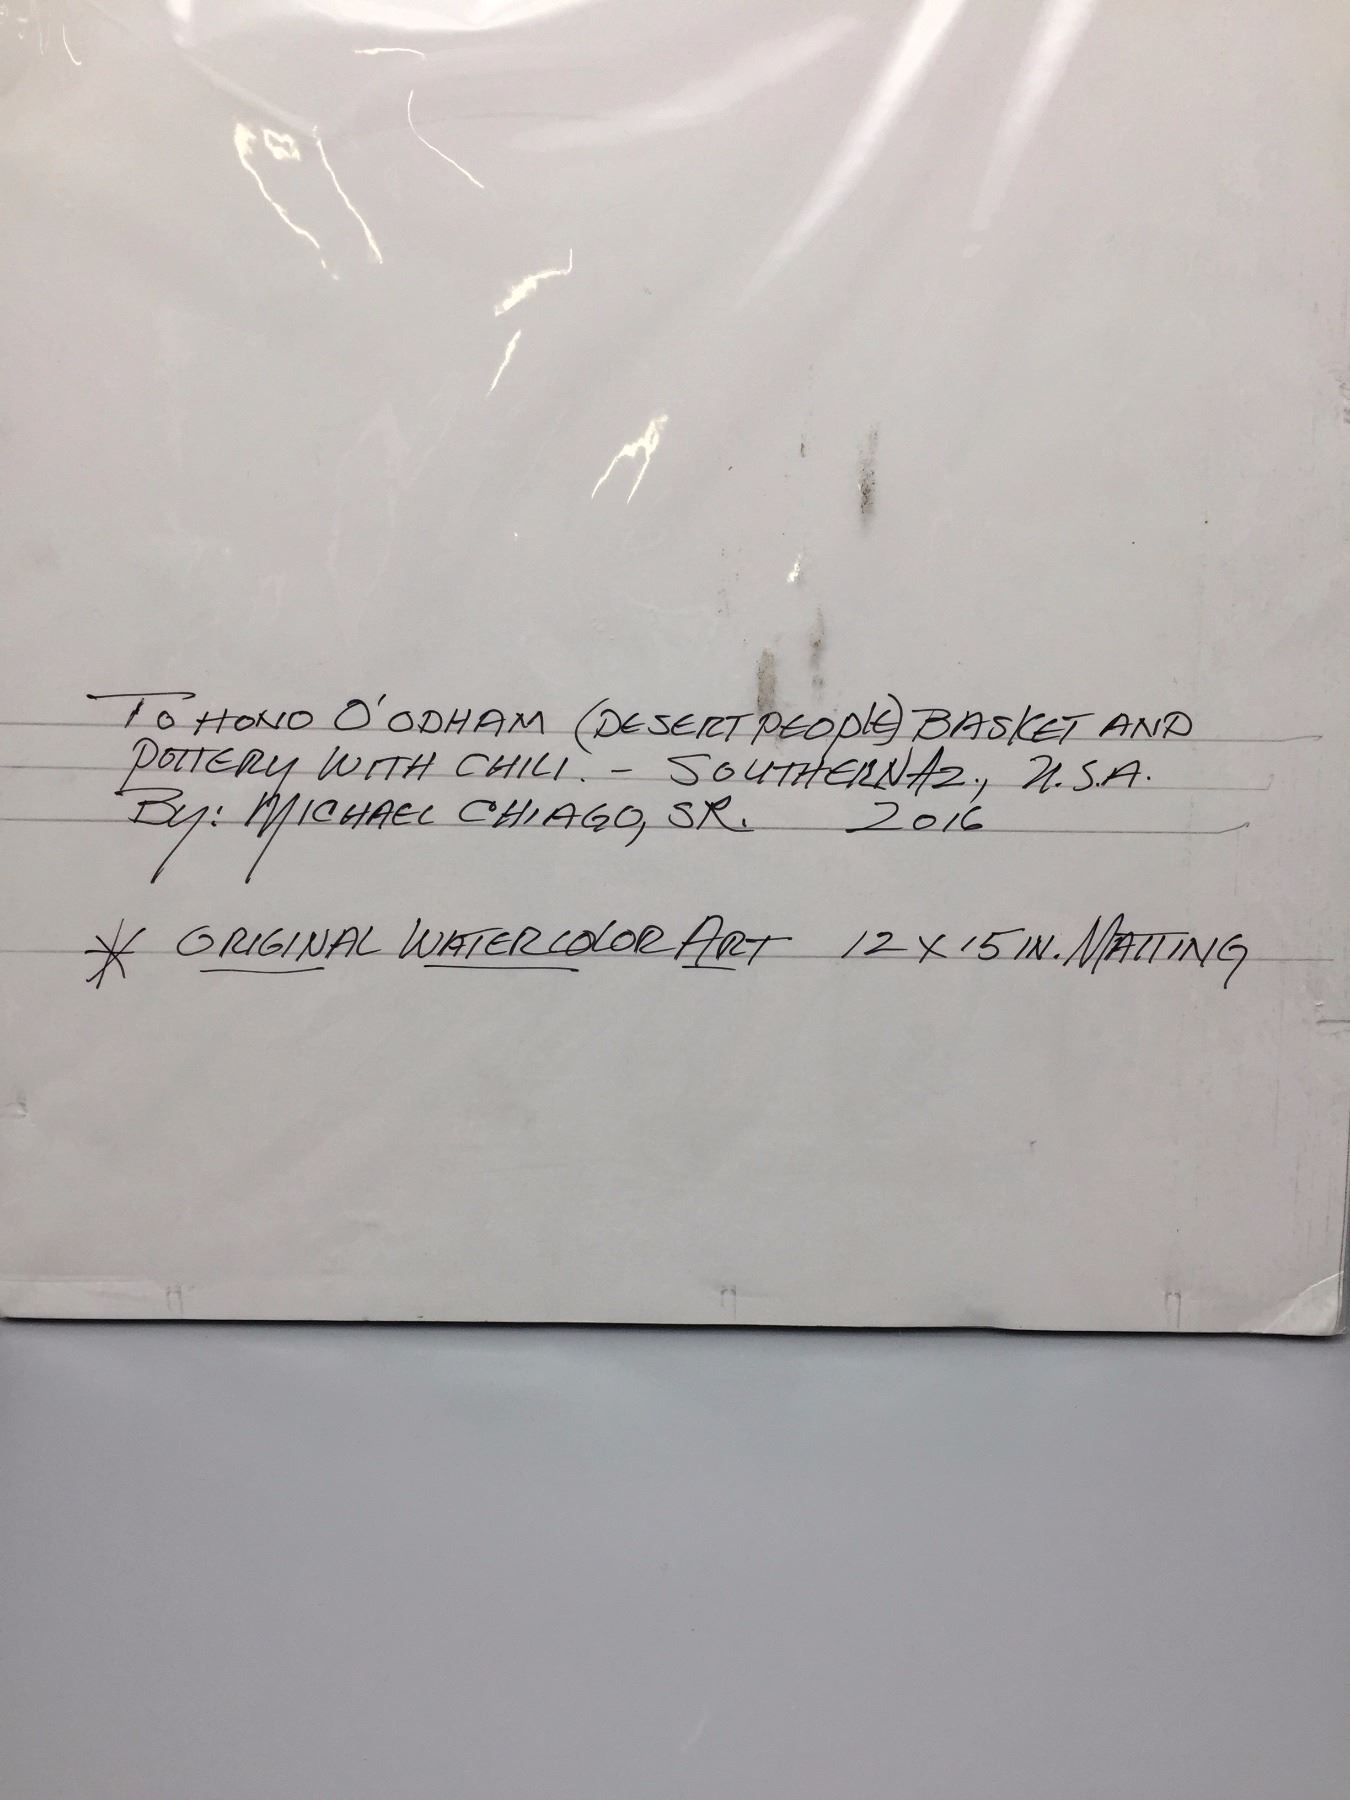 TOHONO O'ODHAM (DESERT PEOPLE) BASKET AND
POTTERY WITH CHILI. - SOUTHERN AZ., U.S.A.
By: MICHAEL CHIAGO, SR. 2016
* ORIGINAL WATERCOLOR ART 12 x 15 IN. MATTING